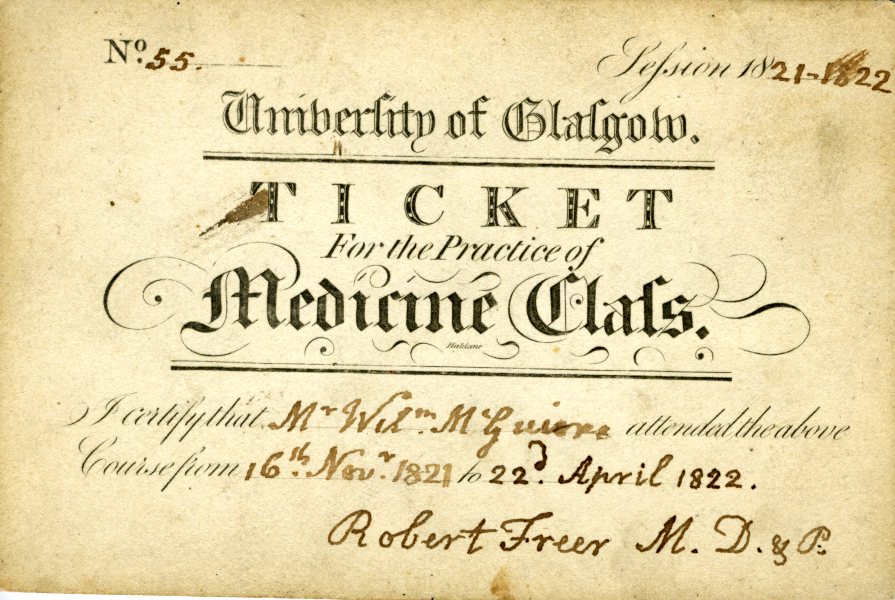 Nº. 55.
Seſsion 1821-1822
Univerſity of Glaſgow.
TICKET
For the Practice of
Medicine Claſs.
Haldane
I certify that Mr Willm. McGuire attended the above
Course from 16th. Novr. 1821 to 22d. April 1822.
Robert Freer M. D. & P.